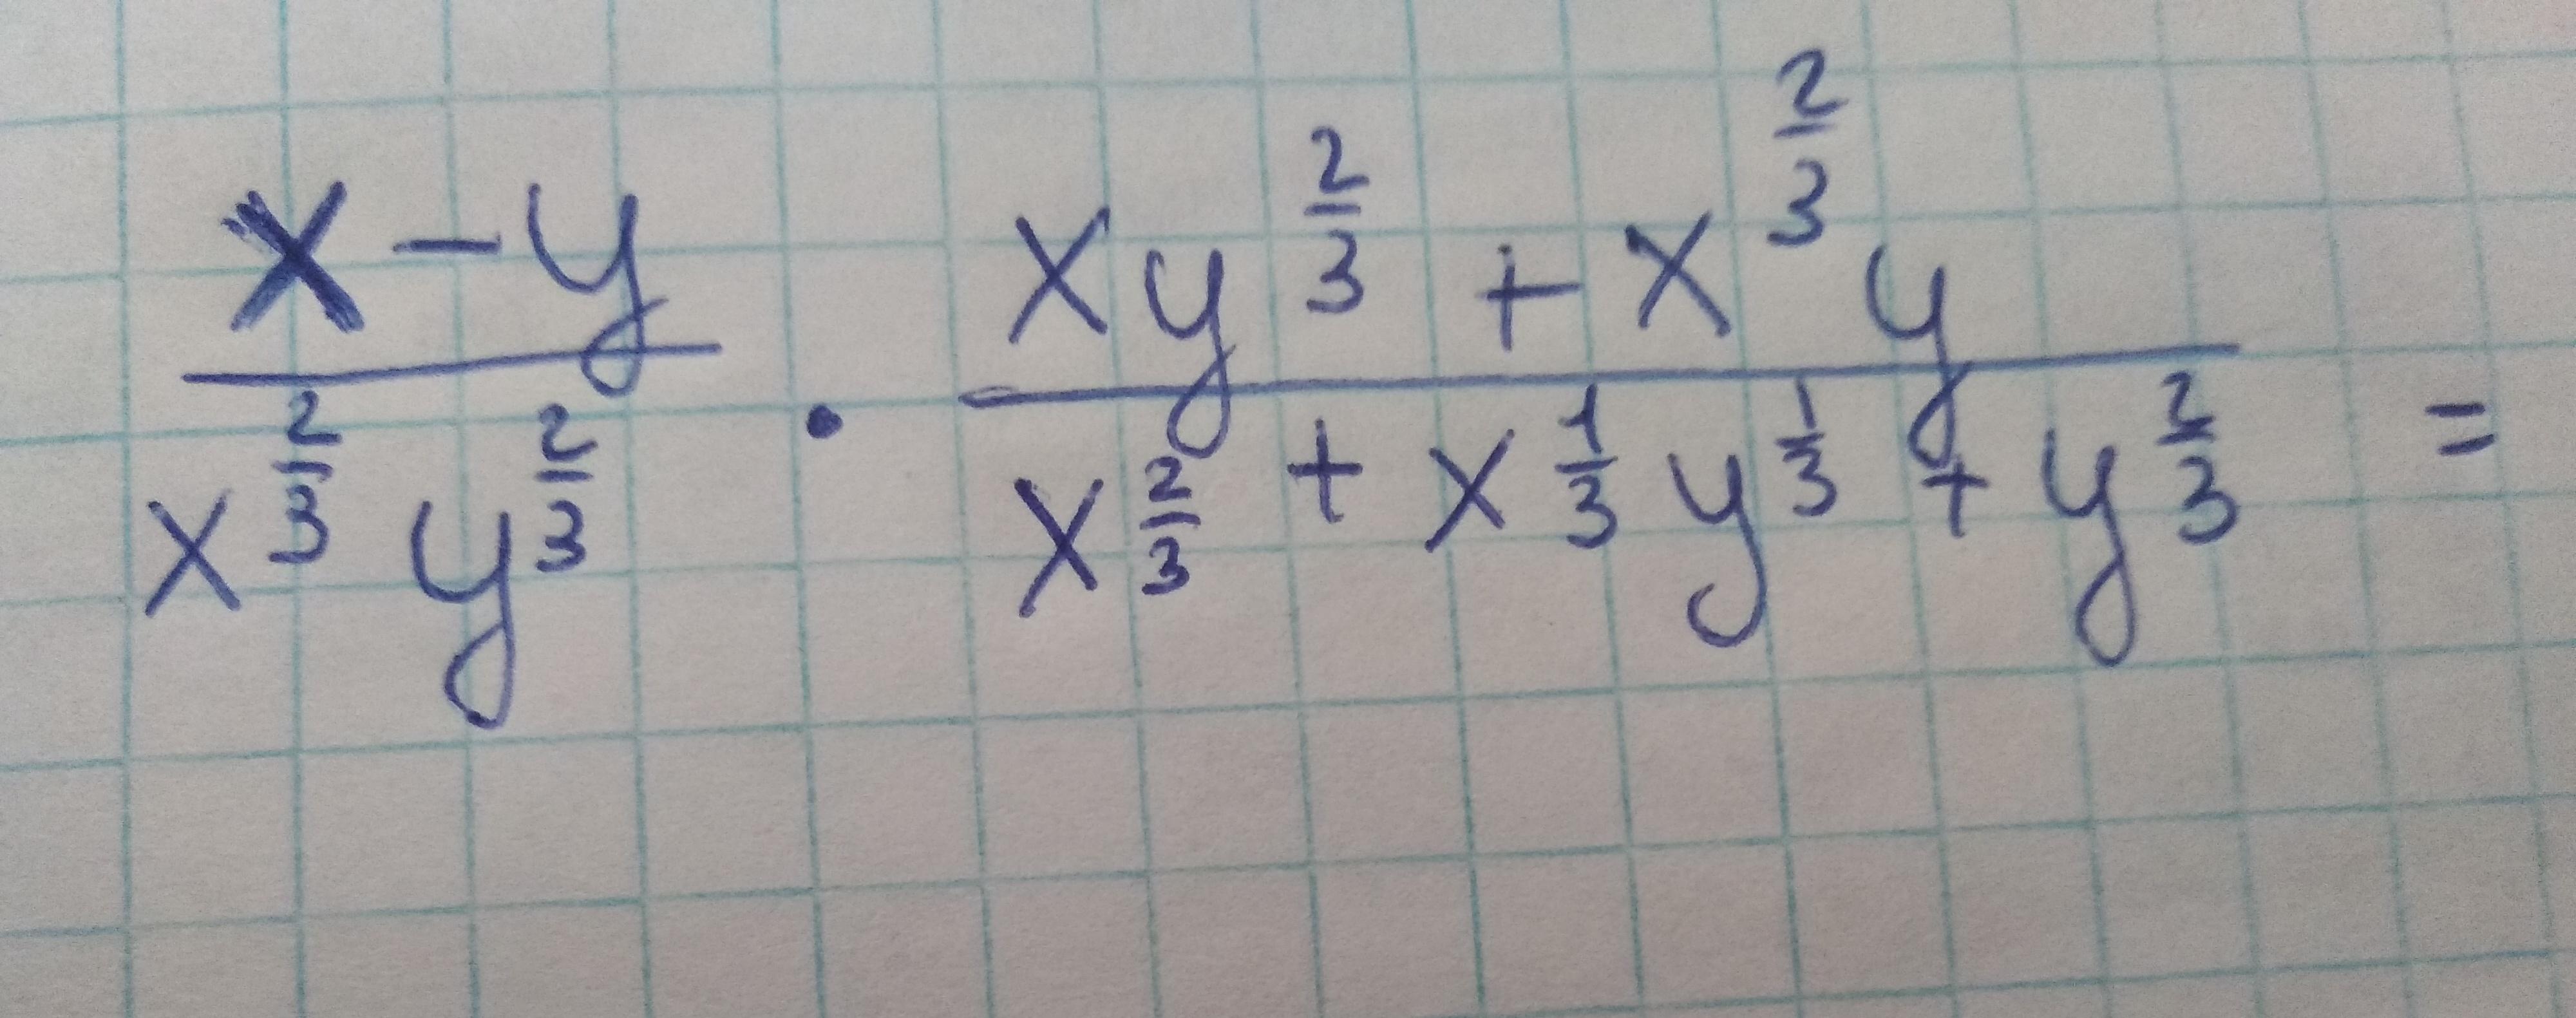 \frac{x-y}{x^{\frac{2}{3}} y^{\frac{2}{3}}} \cdot \frac{xy^{\frac{2}{3}} + x^{\frac{2}{3}}y}{x^{\frac{2}{3}} + x^{\frac{1}{3}} y^{\frac{1}{3}} + y^{\frac{2}{3}}} =